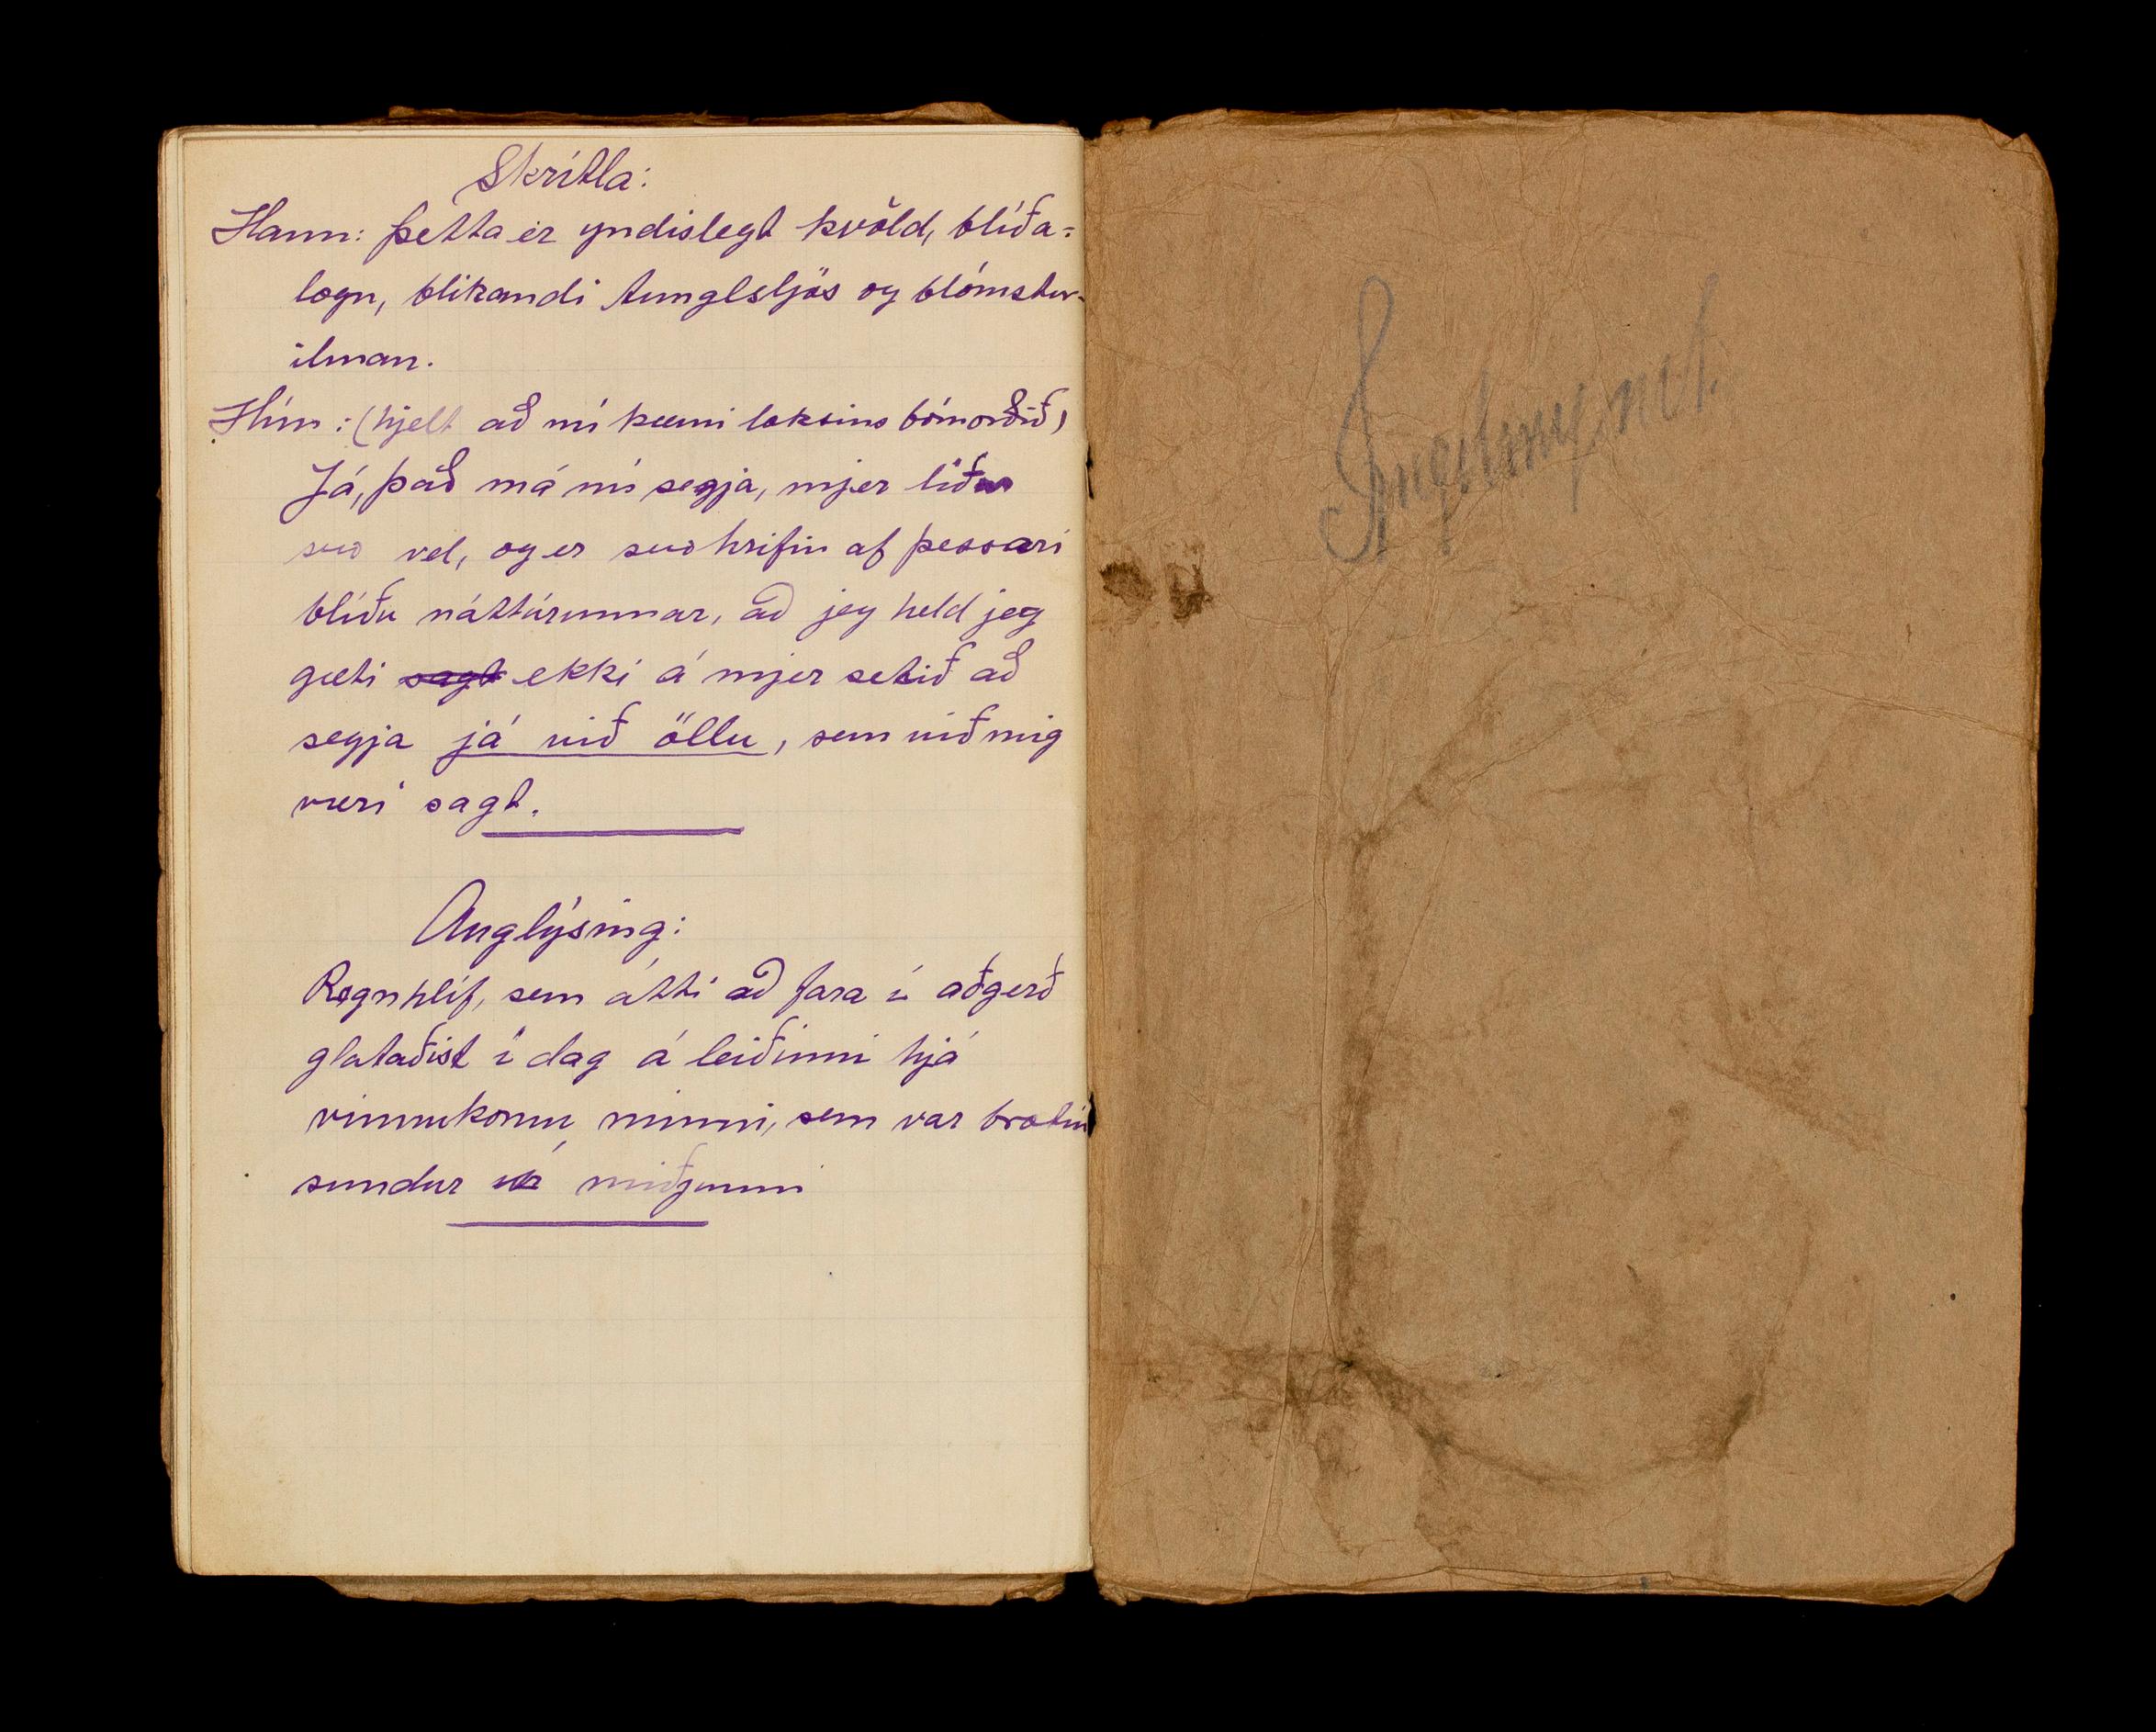 Skrítla:
Hann: Þetta er yndislegt kvöld, blíða=
logn, blikandi tunglsljós og blómstur-
ilman.
Hún: (hjelt að nú kæmi loksins bónorðið)
Já, það má nú segja, mjer líður
svo vel, og er svo hrifin af þessari
blíðu náttúrunnar, að jeg held jeg
gæti sagt ekki á mjer setið að
segja já við öllu, sem við mig
væri sagt.
Auglýsing:
Regnhlíf, sem átti að fara í aðgerð
glataðist í dag á leiðinni hjá
vinnukonu minni, sem var brotin
sundur í miðjunni